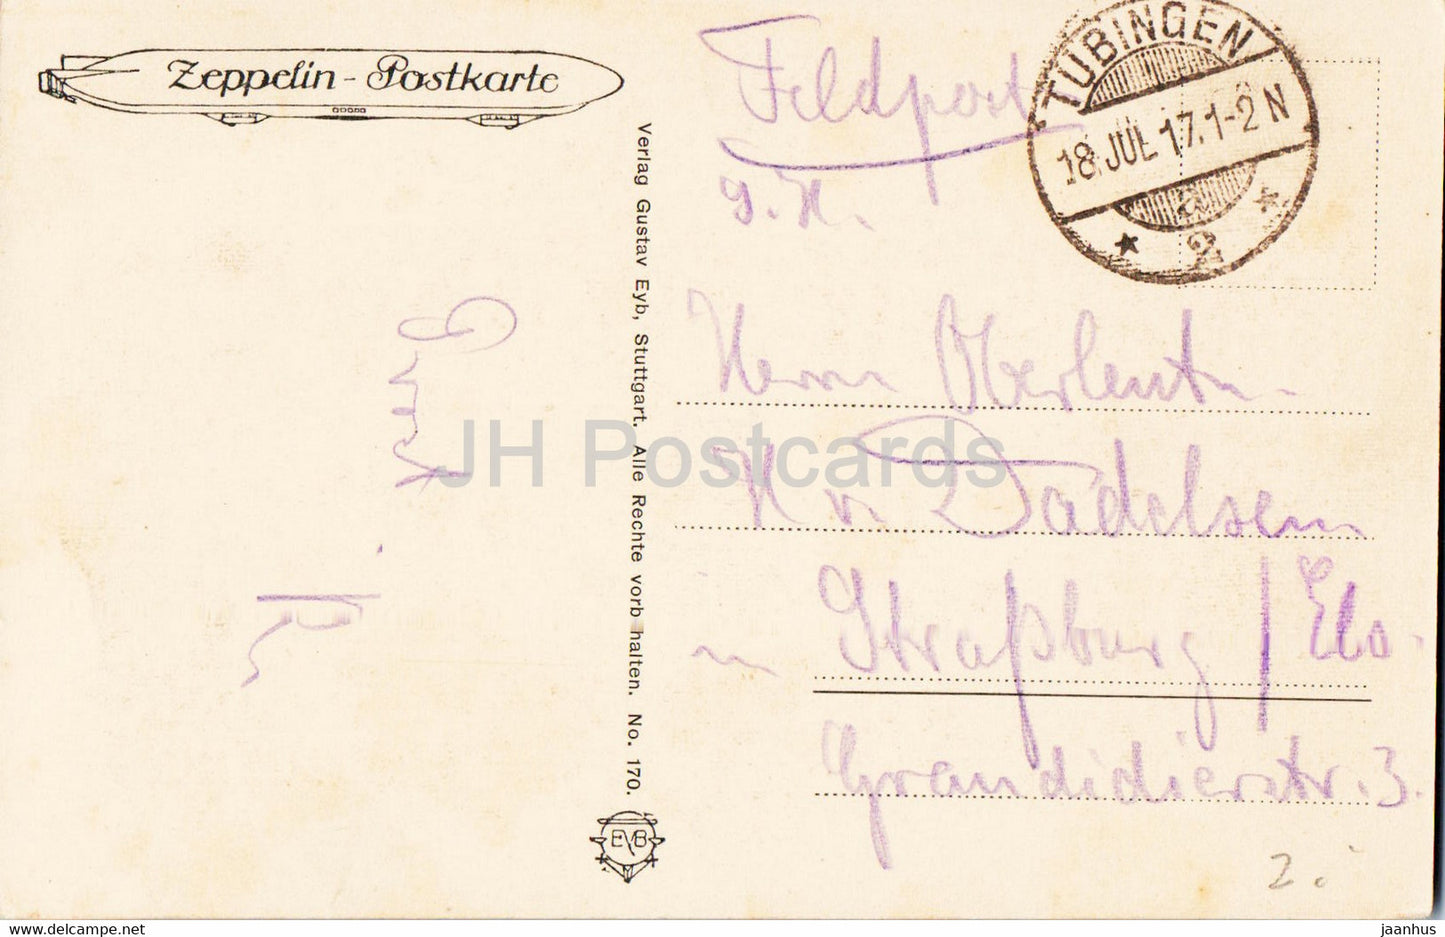 Zeppelin - Postkarte
Verlag Gustav Eyb, Stuttgart. Alle Rechte vorb halten. No. 170.
EYB
TÜBINGEN
18.JUL.17.1-2 N
* 2 *
a
Feldpost
S.H.
Herrn Oberleutn.
H v. Dadelsen
in Straßburg / Els.
Grandidierstr. 3.
Gruß
R
2.
JH Postcards
www.hippostcard.com
jaanhus